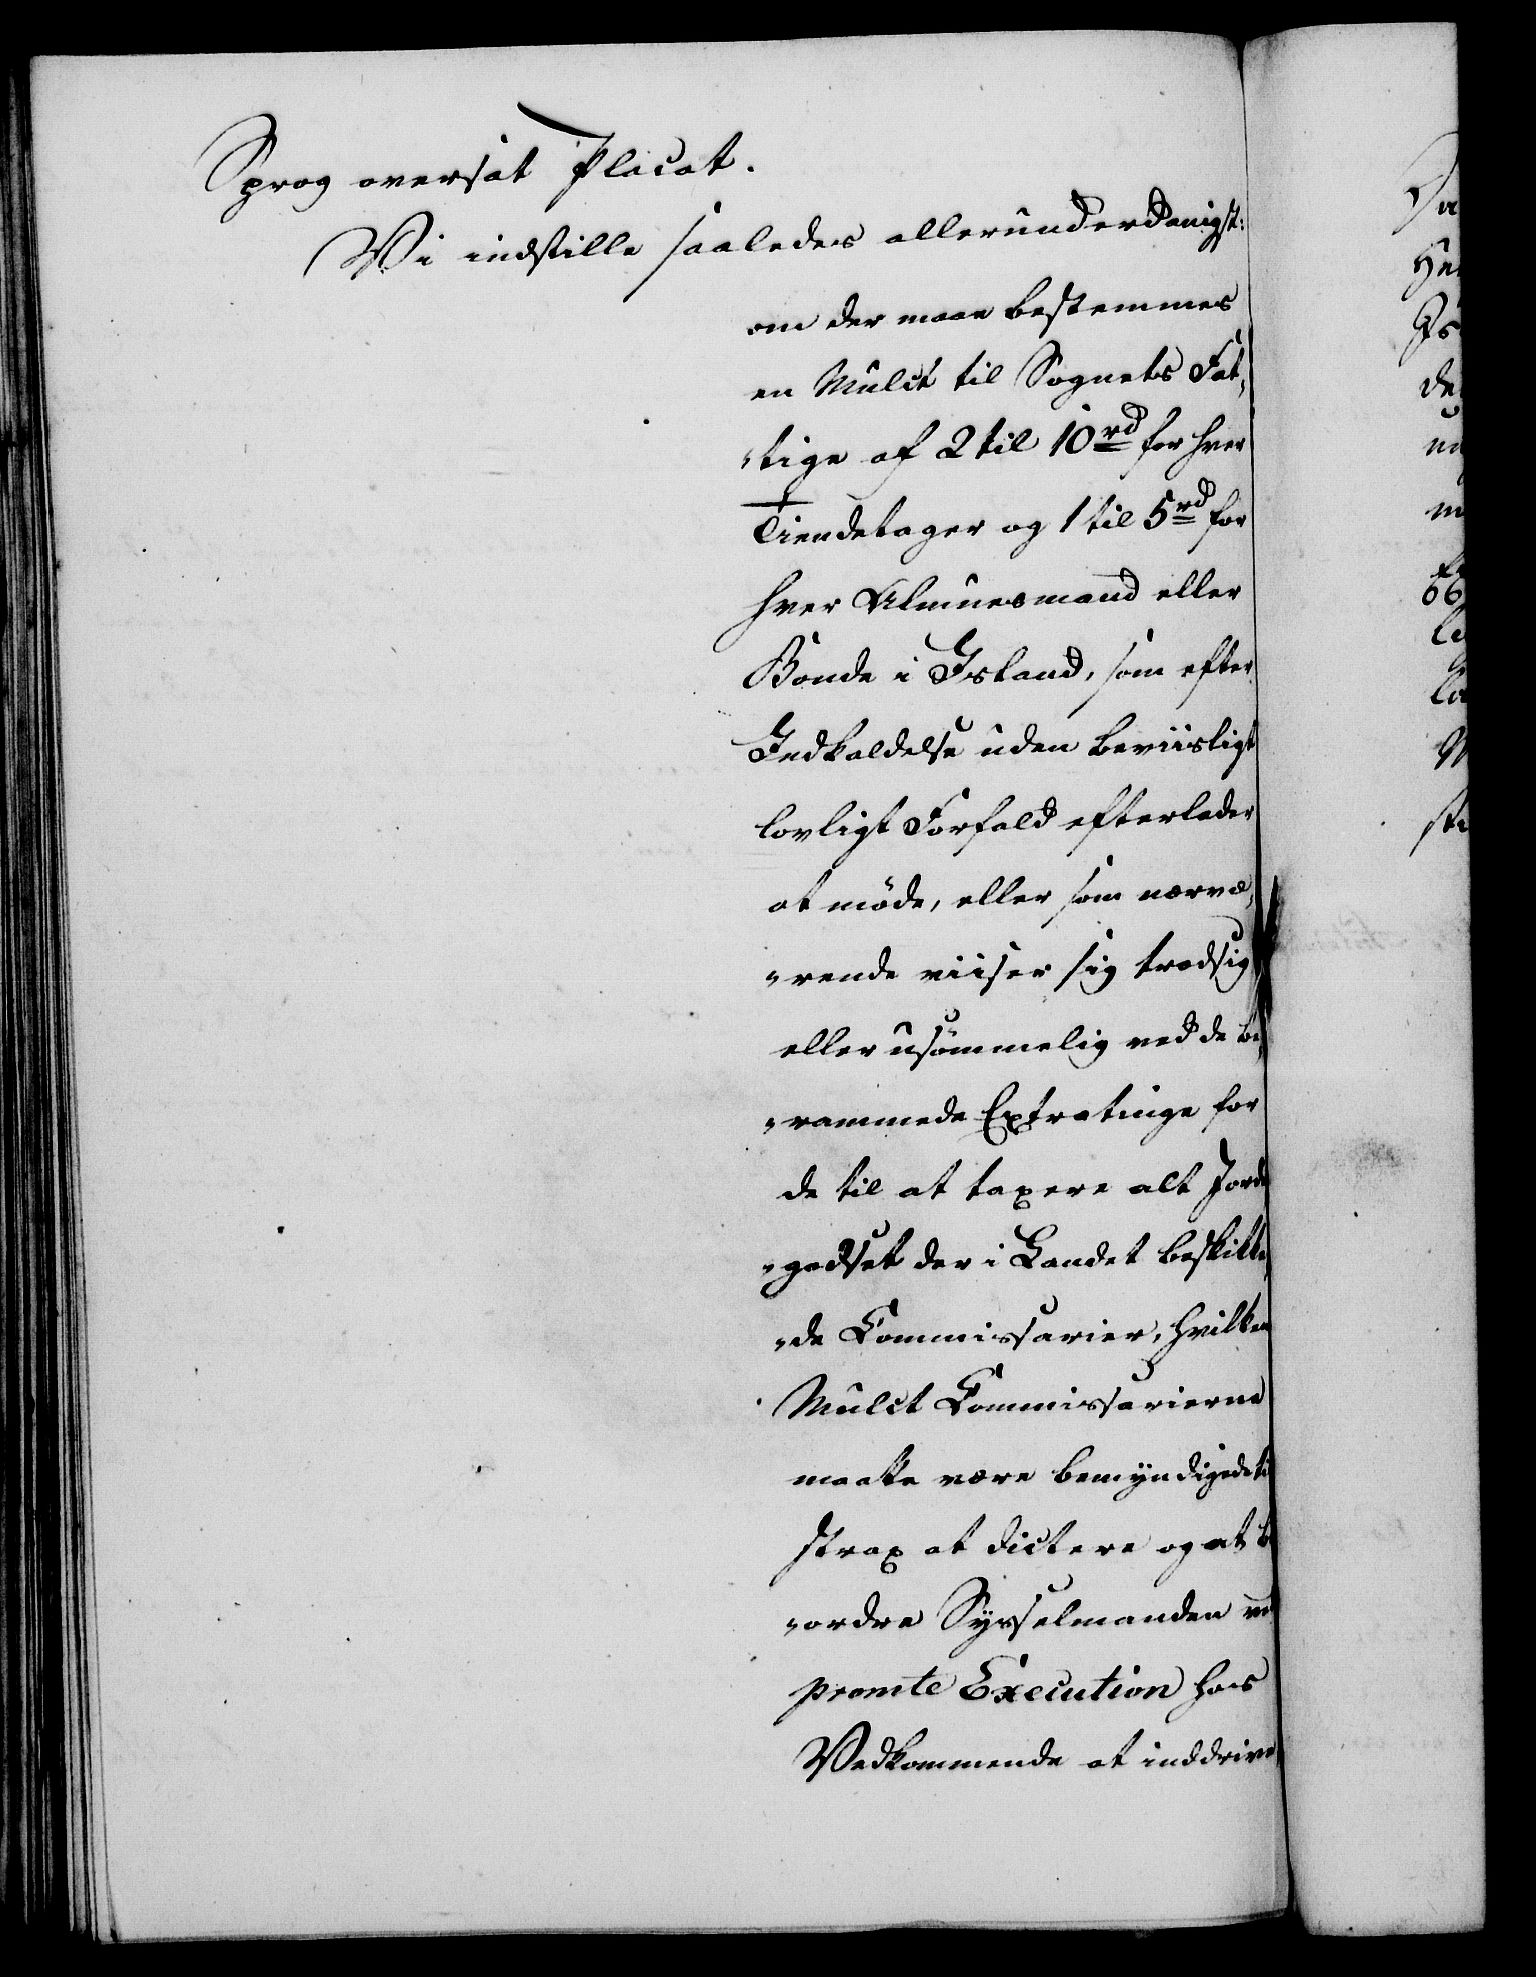 Sprog oversat Placat.
Vi indstille saaledes allerunderdanigst:
om der maae bestemmes
en Mulct til Sognets Fat,
"tige af 2 til 10 rd for hver
Tiendetager og 1 til 5 rd for
hver Almuesmand eller
Bonde i Island, som efter
Indkaldelse uden beviisligt
lovligt Forfald efterlader
at møde, eller som nærvæ,
"rende viiser sig trodsig
eller usømmelig ved de be,
"rammede Extratinge for
de til at taxere alt Jorde
"godset der i Landet beskikke,
"de Commissarier, hvilken
Mulct Commissarierne
maatte være bemyndigede til
strax at dictere og at b
"ordre Sysselmanden ved
promte Execution hos
Vedkommende at inddrive